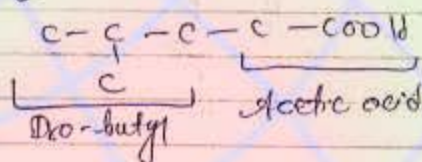 C - C - C - C - COOH
C
Iso-butyl Acetic acid